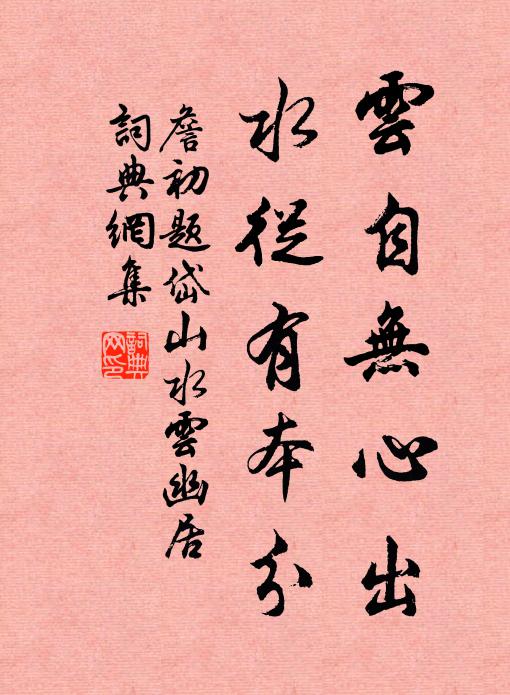 雲自無心出
水從有本分
詹初題岱山水雲幽居
詞典網集
詞典網印